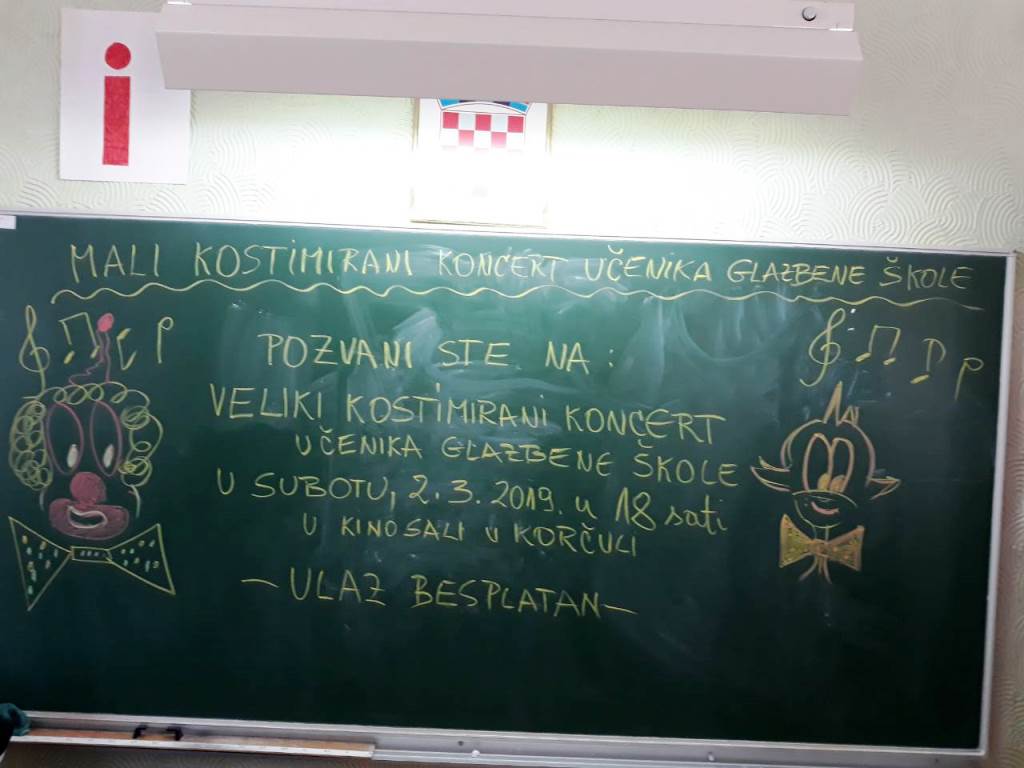 i
MALI KOSTIMIRANI KONCERT UČENIKA GLAZBENE ŠKOLE
POZVANI STE NA:
VELIKI KOSTIMIRANI KONCERT
UČENIKA GLAZBENE ŠKOLE
U SUBOTU, 2.3.2019. u 18 sati
U KINO SALI U KORČULI
- ULAZ BESPLATAN -